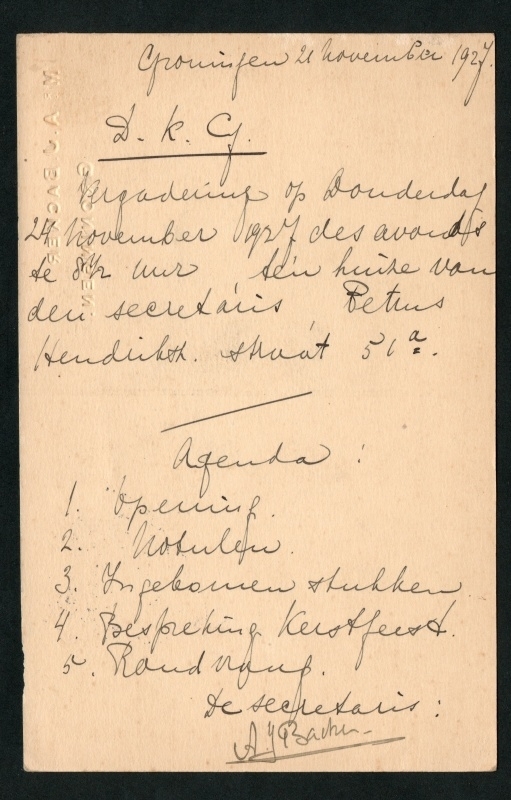 Groningen 21 November 1927.
D. K. G.
Vergadering op Donderdag
24 November 1927 des avonds
te 8½ uur ten huize van
den secretaris, Petrus
Hendriksz. straat 51a.
Agenda :
1. Opening.
2. Notulen.
3. Ingekomen stukken
4. Bespreking Kerstfeest.
5. Rondvraag.
De secretaris: